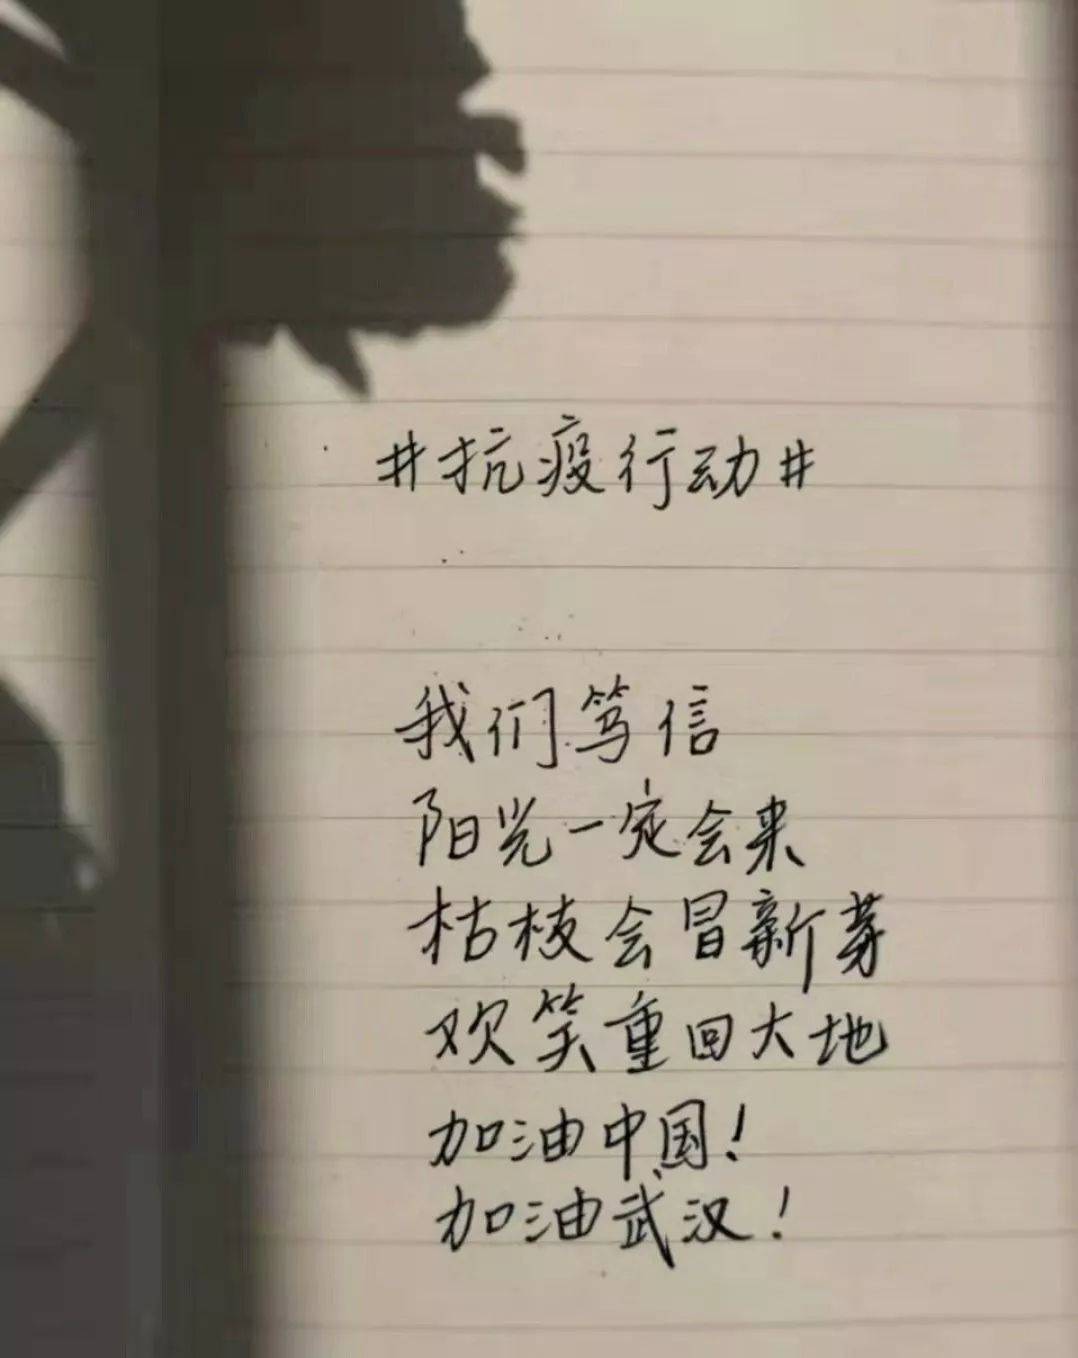 #抗疫行动#
我们笃信
阳光一定会来
枯枝会冒新芽
欢笑重回大地
加油中国!
加油武汉!